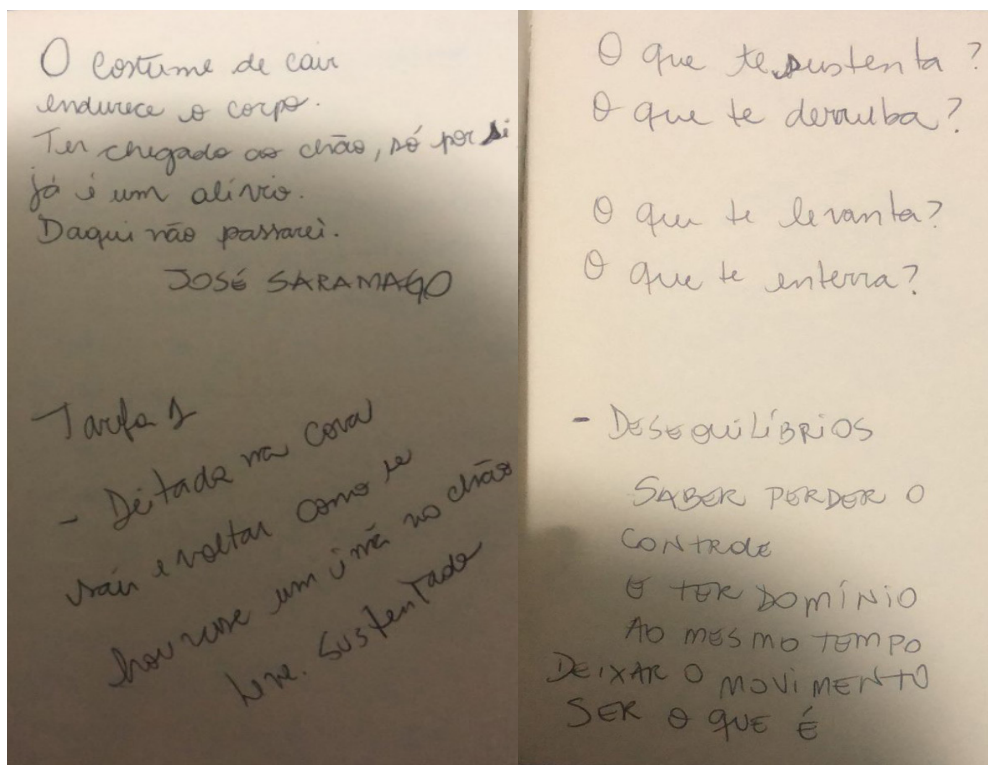 O costume de cair
endurece o corpo.
Ter chegado ao chão, só por si
já é um alívio.
Daqui não passarei.
JOSÉ SARAMAGO
Tarefa 1
- Deitada na cova
sair e voltar como se
houvesse um imã no chão
Leve. Sustentado
O que te sustenta?
O que te derruba?
O que te levanta?
O que te enterra?
- DESEQUILÍBRIOS
SABER PERDER O
CONTROLE
E TER DOMÍNIO
AO MESMO TEMPO
DEIXAR O MOVIMENTO
SER O QUE É